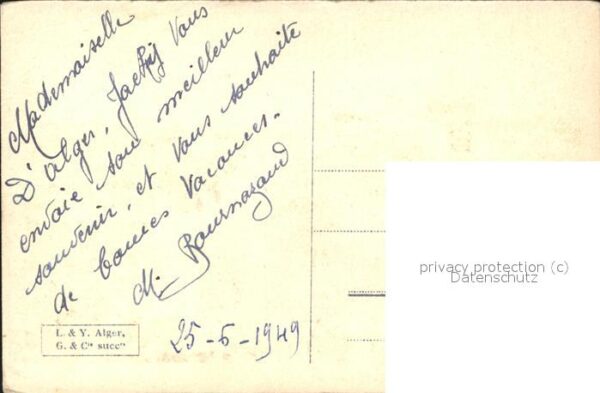 Mademoiselle
D'Alger, Jacky Vous
envoie son meilleur
souvenir, et Vous souhaite
de bonnes Vacances.
M. Bournazaud
25-6-1949
L. & Y. Alger,
G. & Cie succrs
privacy protection (c)
Datenschutz